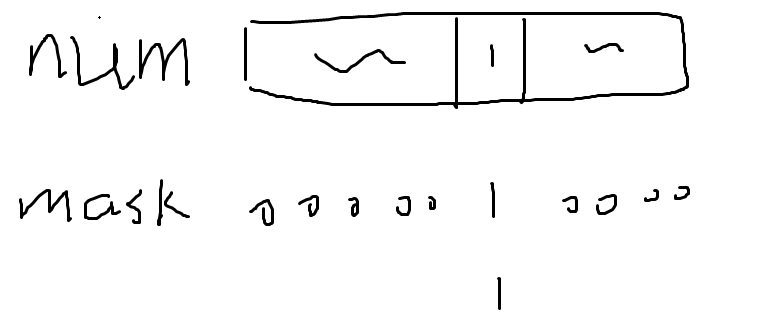 num 1
mask 00000 1 0000
1